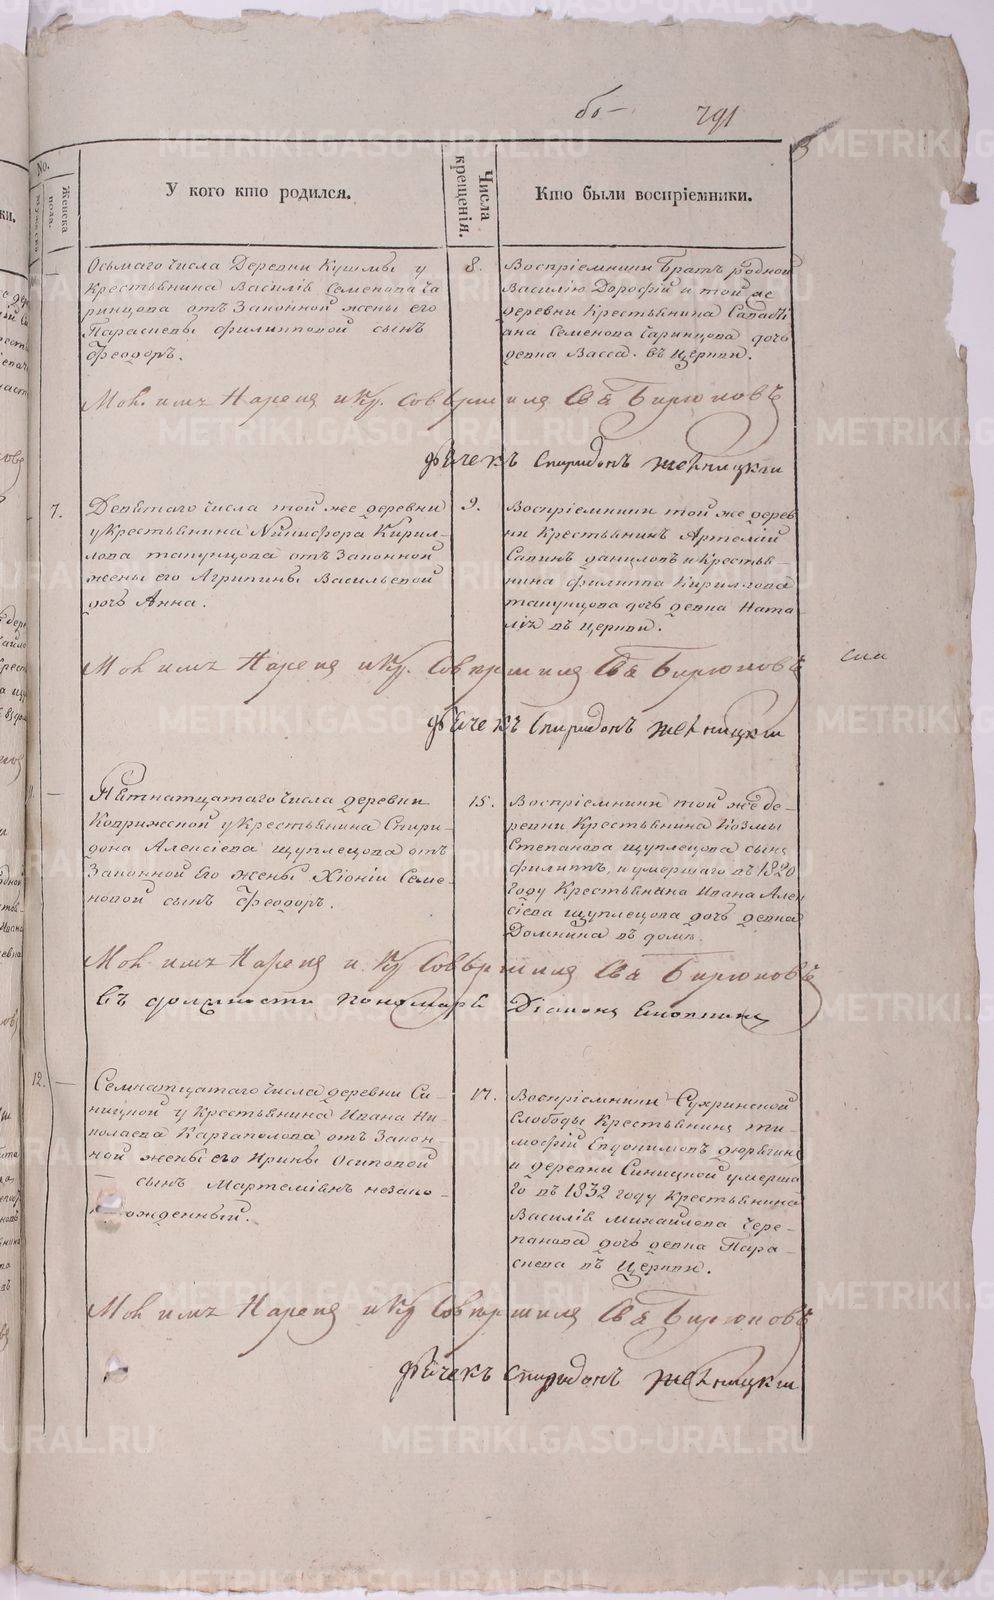 бо
791
No.
Мужеска
Женска
пола.
У кого кто родился.
Числа
крещенія.
Кто были воспріемники.
Осьмаго числа Деревни Кушмы у
Крестьянина Василія Семенова Са
ринцова отъ Законной жены его
Параскевы Филипповой сынъ
Феодоръ.
8.
Воспріемники Братъ родной
Василію Дорофій и той же
деревни Крестьянина Савасті
ана Семенова Саринцова дочь
девка Васса. въ Церкви.
Мол. имъ Нарепя и Кр. Совершилъ Св Бирюковъ
Дьячекъ Спиридонъ
7.
Девятаго числа той же деревни
у Крестьянина Никифора Кирил-
лова танунцова отъ Законной
жены его Агрипины Васильевой
дочь Анна.
9.
Воспріемники той же дерев
ни Крестьянинъ Артемій
Савинъ данилов и Крестья-
нина Филиппа Кириллова
танунцова дочь девка Ната
лія въ Церкви.
Мол. имъ Нарепя и Кр. Совершилъ Св Бирюковъ
Дьячекъ Спиридонъ
11.
Пятнатцатаго числа деревни
Коврижской у Крестьянина Спири-
дона Алексіева щуплецова отъ
Законной Его жены Хіоніи Семе-
новой сынъ Феодоръ.
15.
Воспріемники той же де-
ревни Крестьянина Козмы
Степанова щуплецова сынъ
филиппъ, и умершаго въ 1820
году Крестьянина Ивана Алек
сіева щуплецова дочь девка
Домнина въ домѣ.
Мол. имъ Нарепя и Кр Совершилъ Св Бирюковъ
въ должности пономаря Діаконъ
12.
Семнатцатаго числа деревни Си-
ницкой у Крестьянина Ивана Ни-
колаева Каргаполова отъ Закон-
ной жены его Ирины Осиповой
сынъ Мартеміянъ незако-
рожденный.
17.
Воспріемники Сухринской
Слободы Крестьянинъ ти-
мофій Евдокимовъ дюрягинъ
и деревни Синицкой умерша
го въ 1832 году Крестьянина
Василія Михайлова Чере-
панова дочь девка Пара-
скева въ Церкви.
Мол. имъ Нарепя и Кр Совершилъ Св Бирюковъ
Дьячекъ Спиридонъ
METRIKI.GASO-URAL.RU